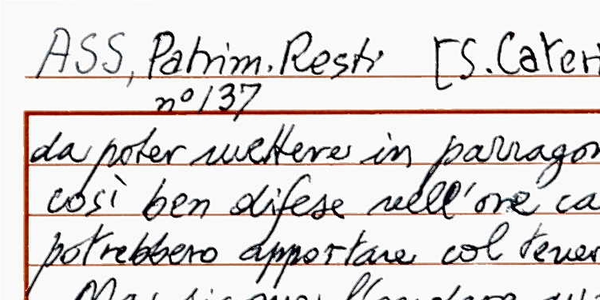 ASS, Patrim. Resti [S. Cater
n° 137
da poter mettere in parragon
così ben difese nell'ore ca
potrebbero apportare col tener